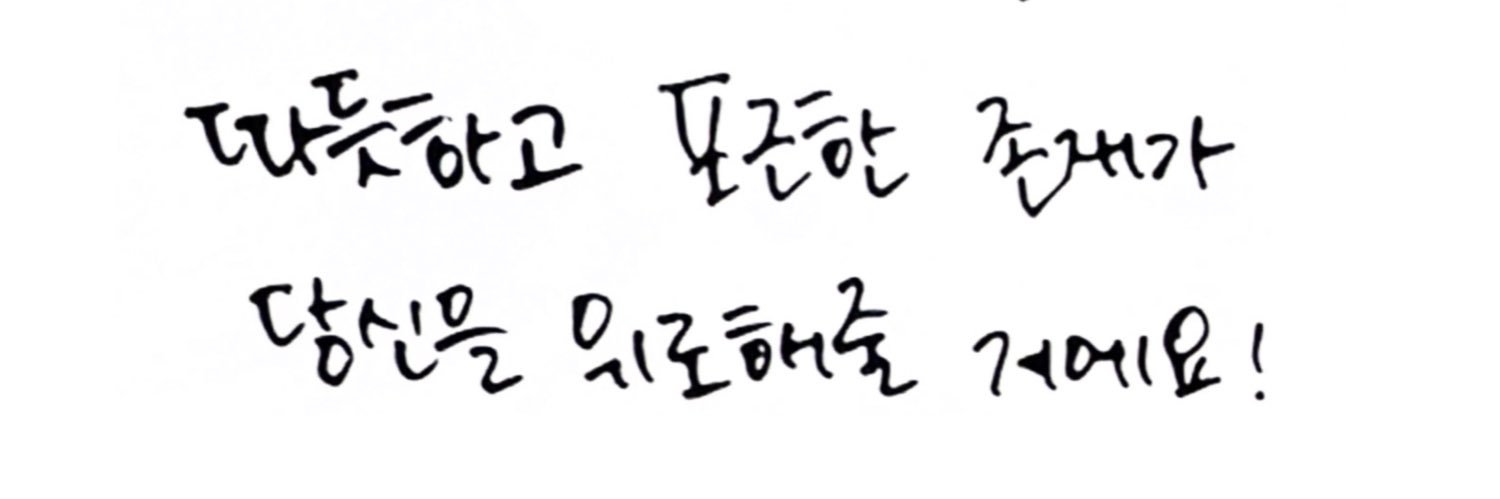 따듯하고 포근한 존재가
당신을 위로해줄 거에요!